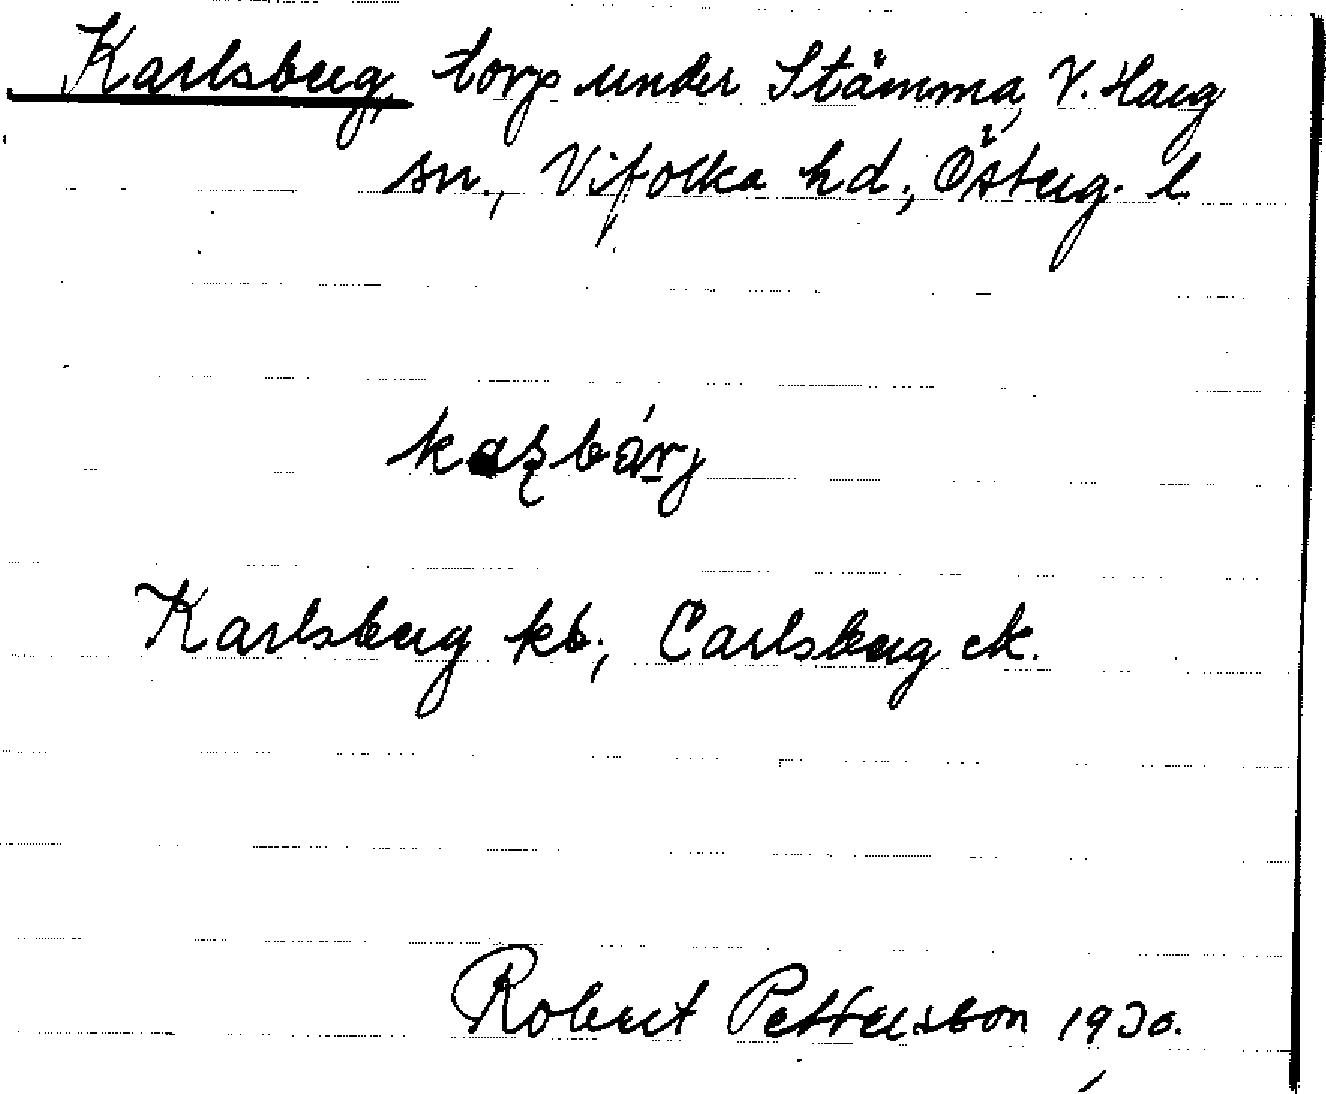 Karlsberg, torp under Stämma, V. Harg
sn., Vifolka hd., Österg. l.
Karlsberg kb., Carlsberg ek.
Robert Pettersson 1930.